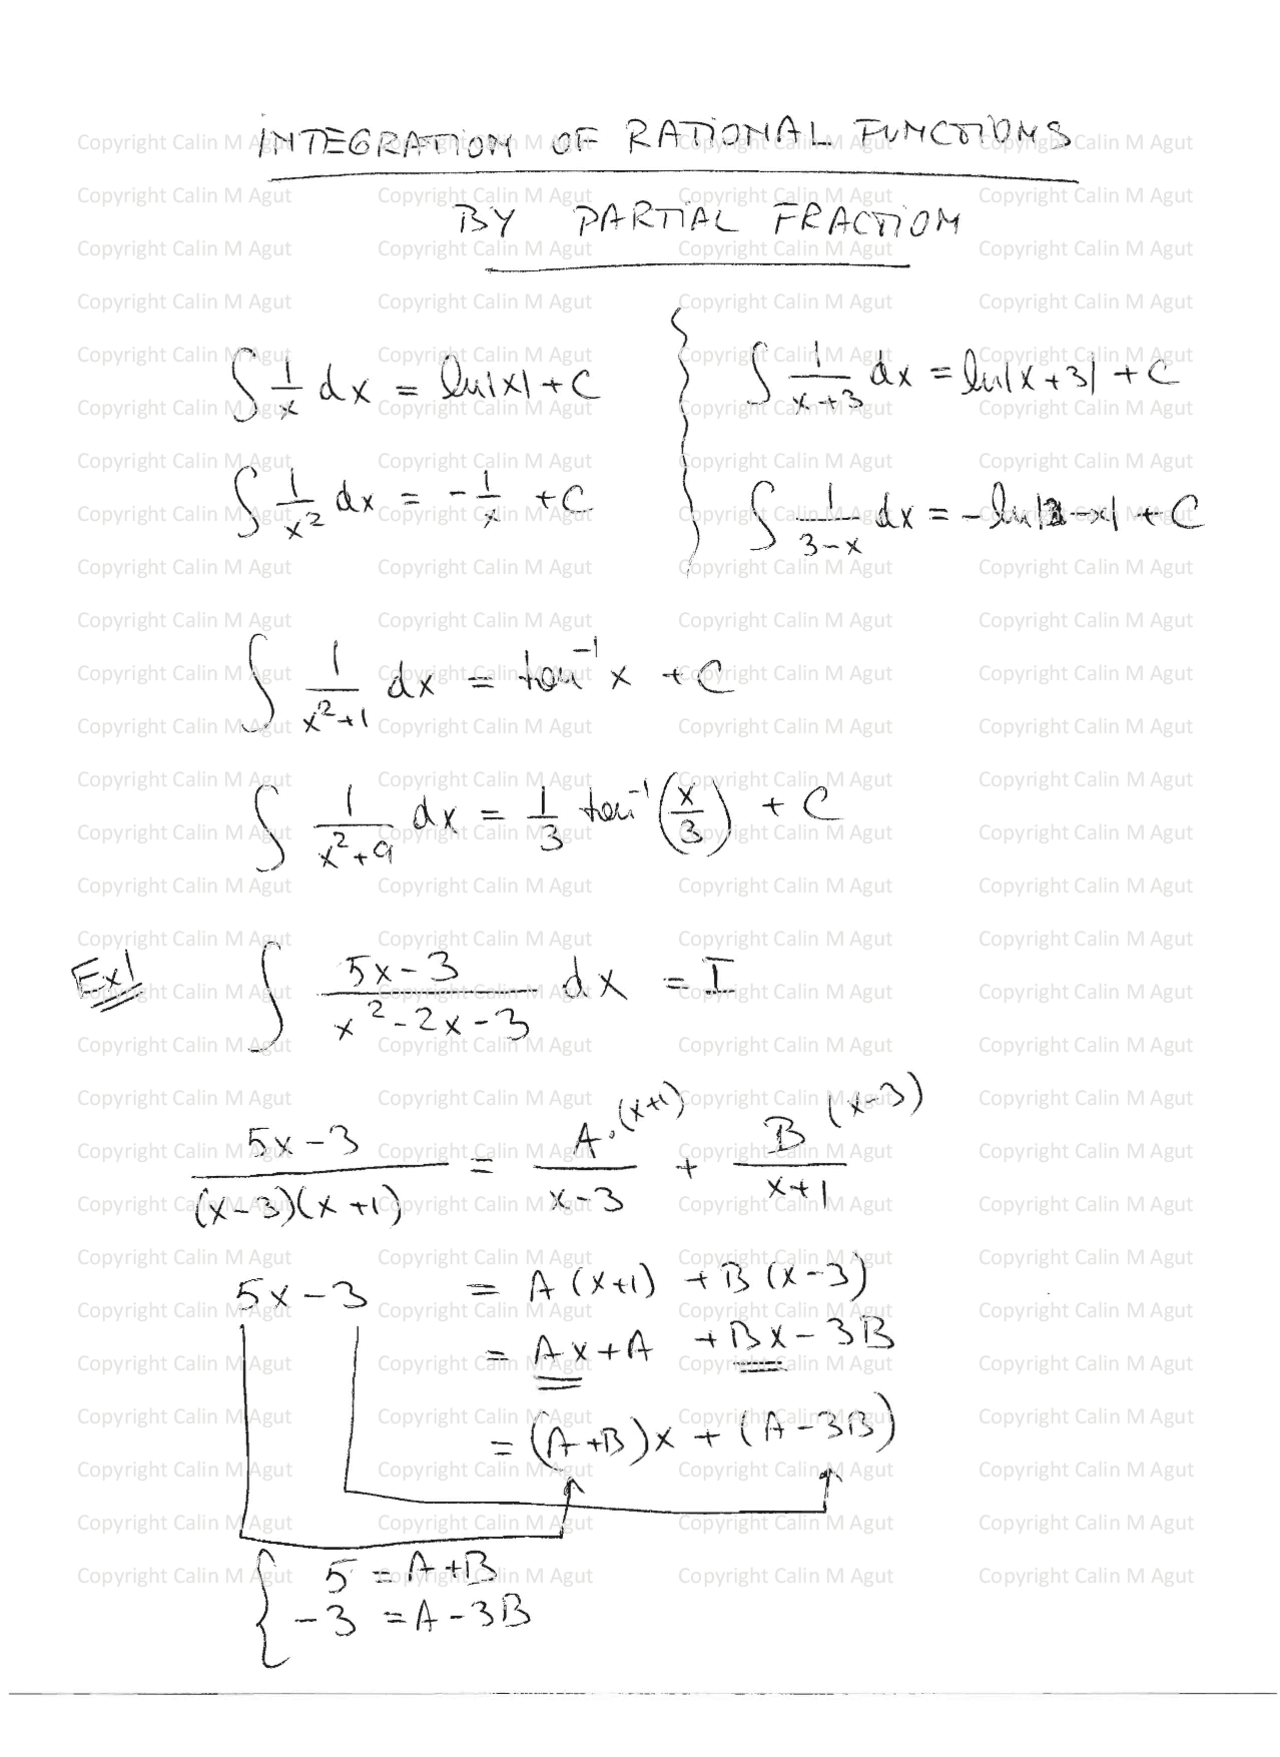 INTEGRATION OF RATIONAL FUNCTIONS
BY PARTIAL FRACTION
∫ 1/x dx = ln|x| + C
∫ 1/x² dx = -1/x + C
∫ 1/(x+3) dx = ln|x+3| + C
∫ 1/(3-x) dx = -ln| -x| + C
∫ 1/(x²+1) dx = tan⁻¹ x + C
∫ 1/(x²+9) dx = 1/3 tan⁻¹ (x/3) + C
Ex1 ∫ (5x-3)/(x²-2x-3) dx = I
(5x-3)/((x-3)(x+1)) = A·(x+1)/(x-3) + B(x-3)/(x+1)
5x-3 = A(x+1) + B(x-3)
= Ax+A + Bx-3B
= (A+B)x + (A-3B)
{ 5 = A+B
-3 = A-3B
Copyright Calin M Agut